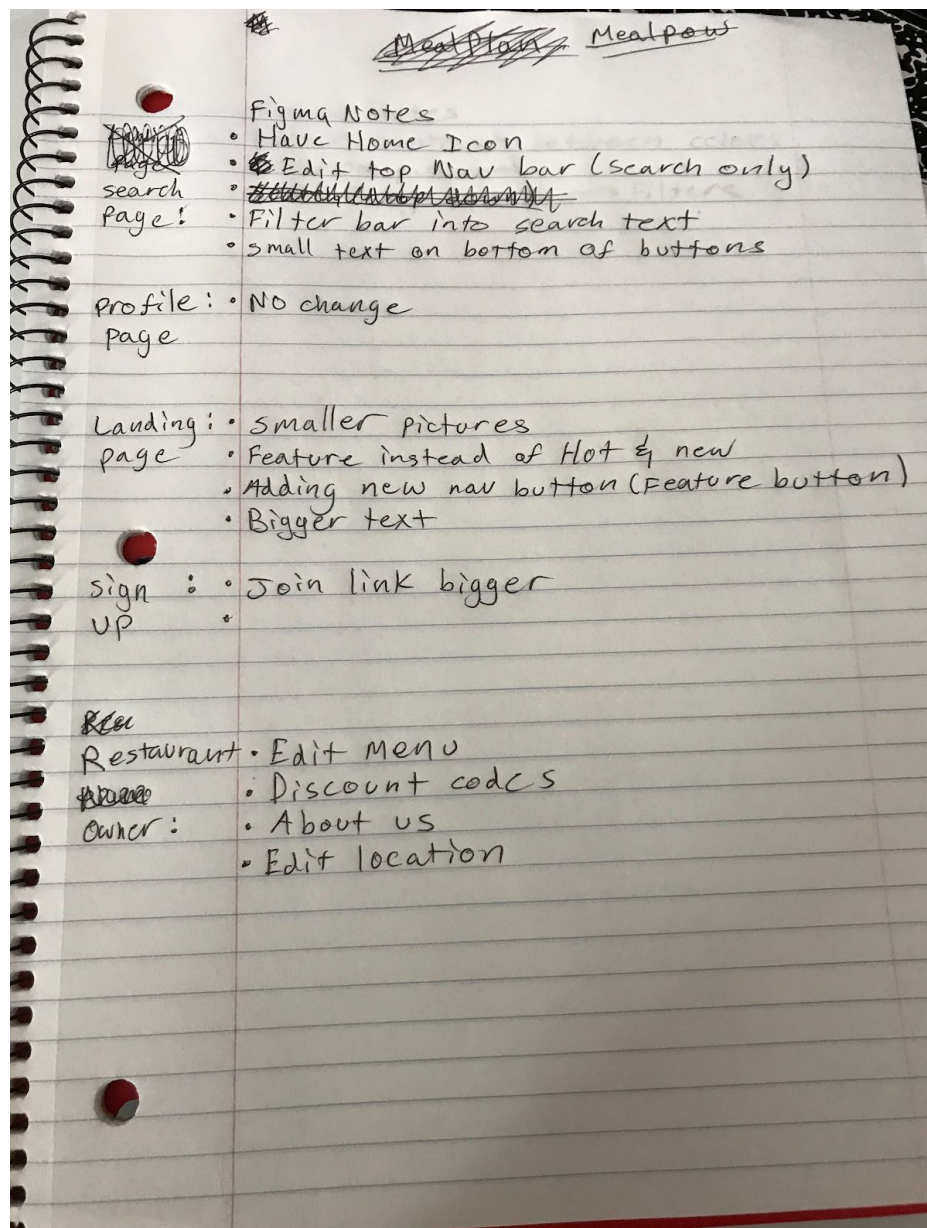 MealPlan Mealpow
Figma Notes
• Have Home Icon
page • Edit top Nav bar (search only)
search •
Page: • Filter bar into search text
• small text on bottom of buttons
Profile: • No change
page
Landing: • smaller pictures
page • Feature instead of Hot & new
• Adding new nav button (Feature button)
• Bigger text
sign : • Join link bigger
up •
Restaurant • Edit Menu
• Discount codes
owner: • About us
• Edit location